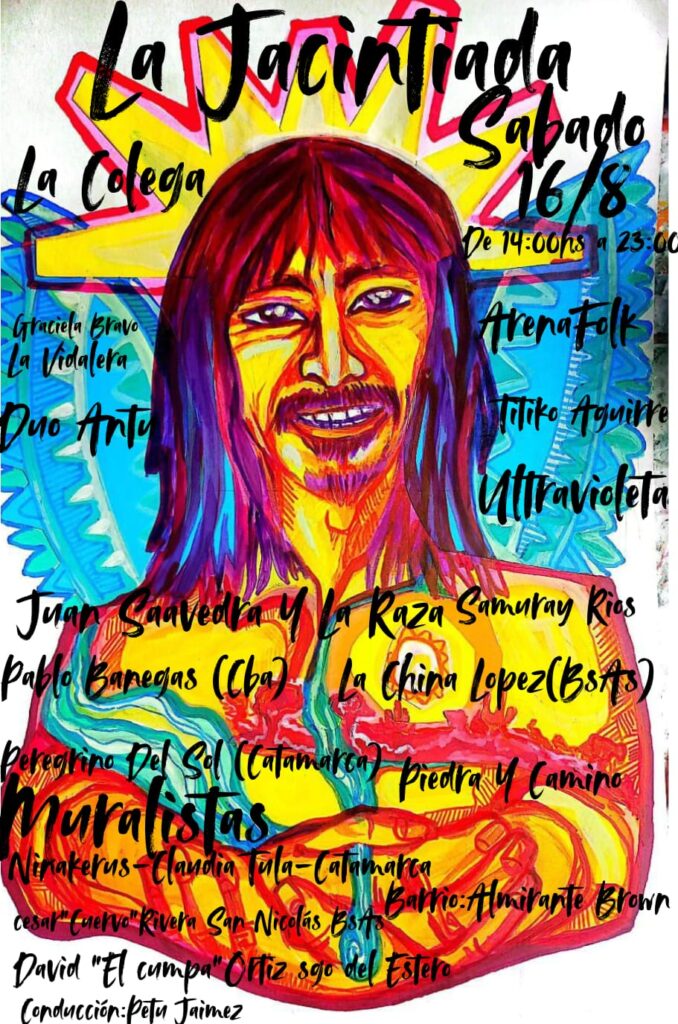 La Jacintiada
Sabado
16/8
De 14:00hs a 23:00
La Colega
Graciela Bravo
La Vidalera
Duo Antu
ArenaFolk
Titiko Aguirre
Ultravioleta
Juan Saavedra Y La Raza
Samuray Rios
Pablo Banegas (Cba)
La China Lopez(BsAs)
Peregrino Del Sol (Catamarca)
Piedra Y Camino
Muralistas
Ninakerus-Claudia Tula-Catamarca
Barrio:Almirante Brown
cesar"Cuervo"Rivera San-Nicolás BsAs
David "El cumpa"Ortiz sgo del Estero
Conducción:Petu Jaimez